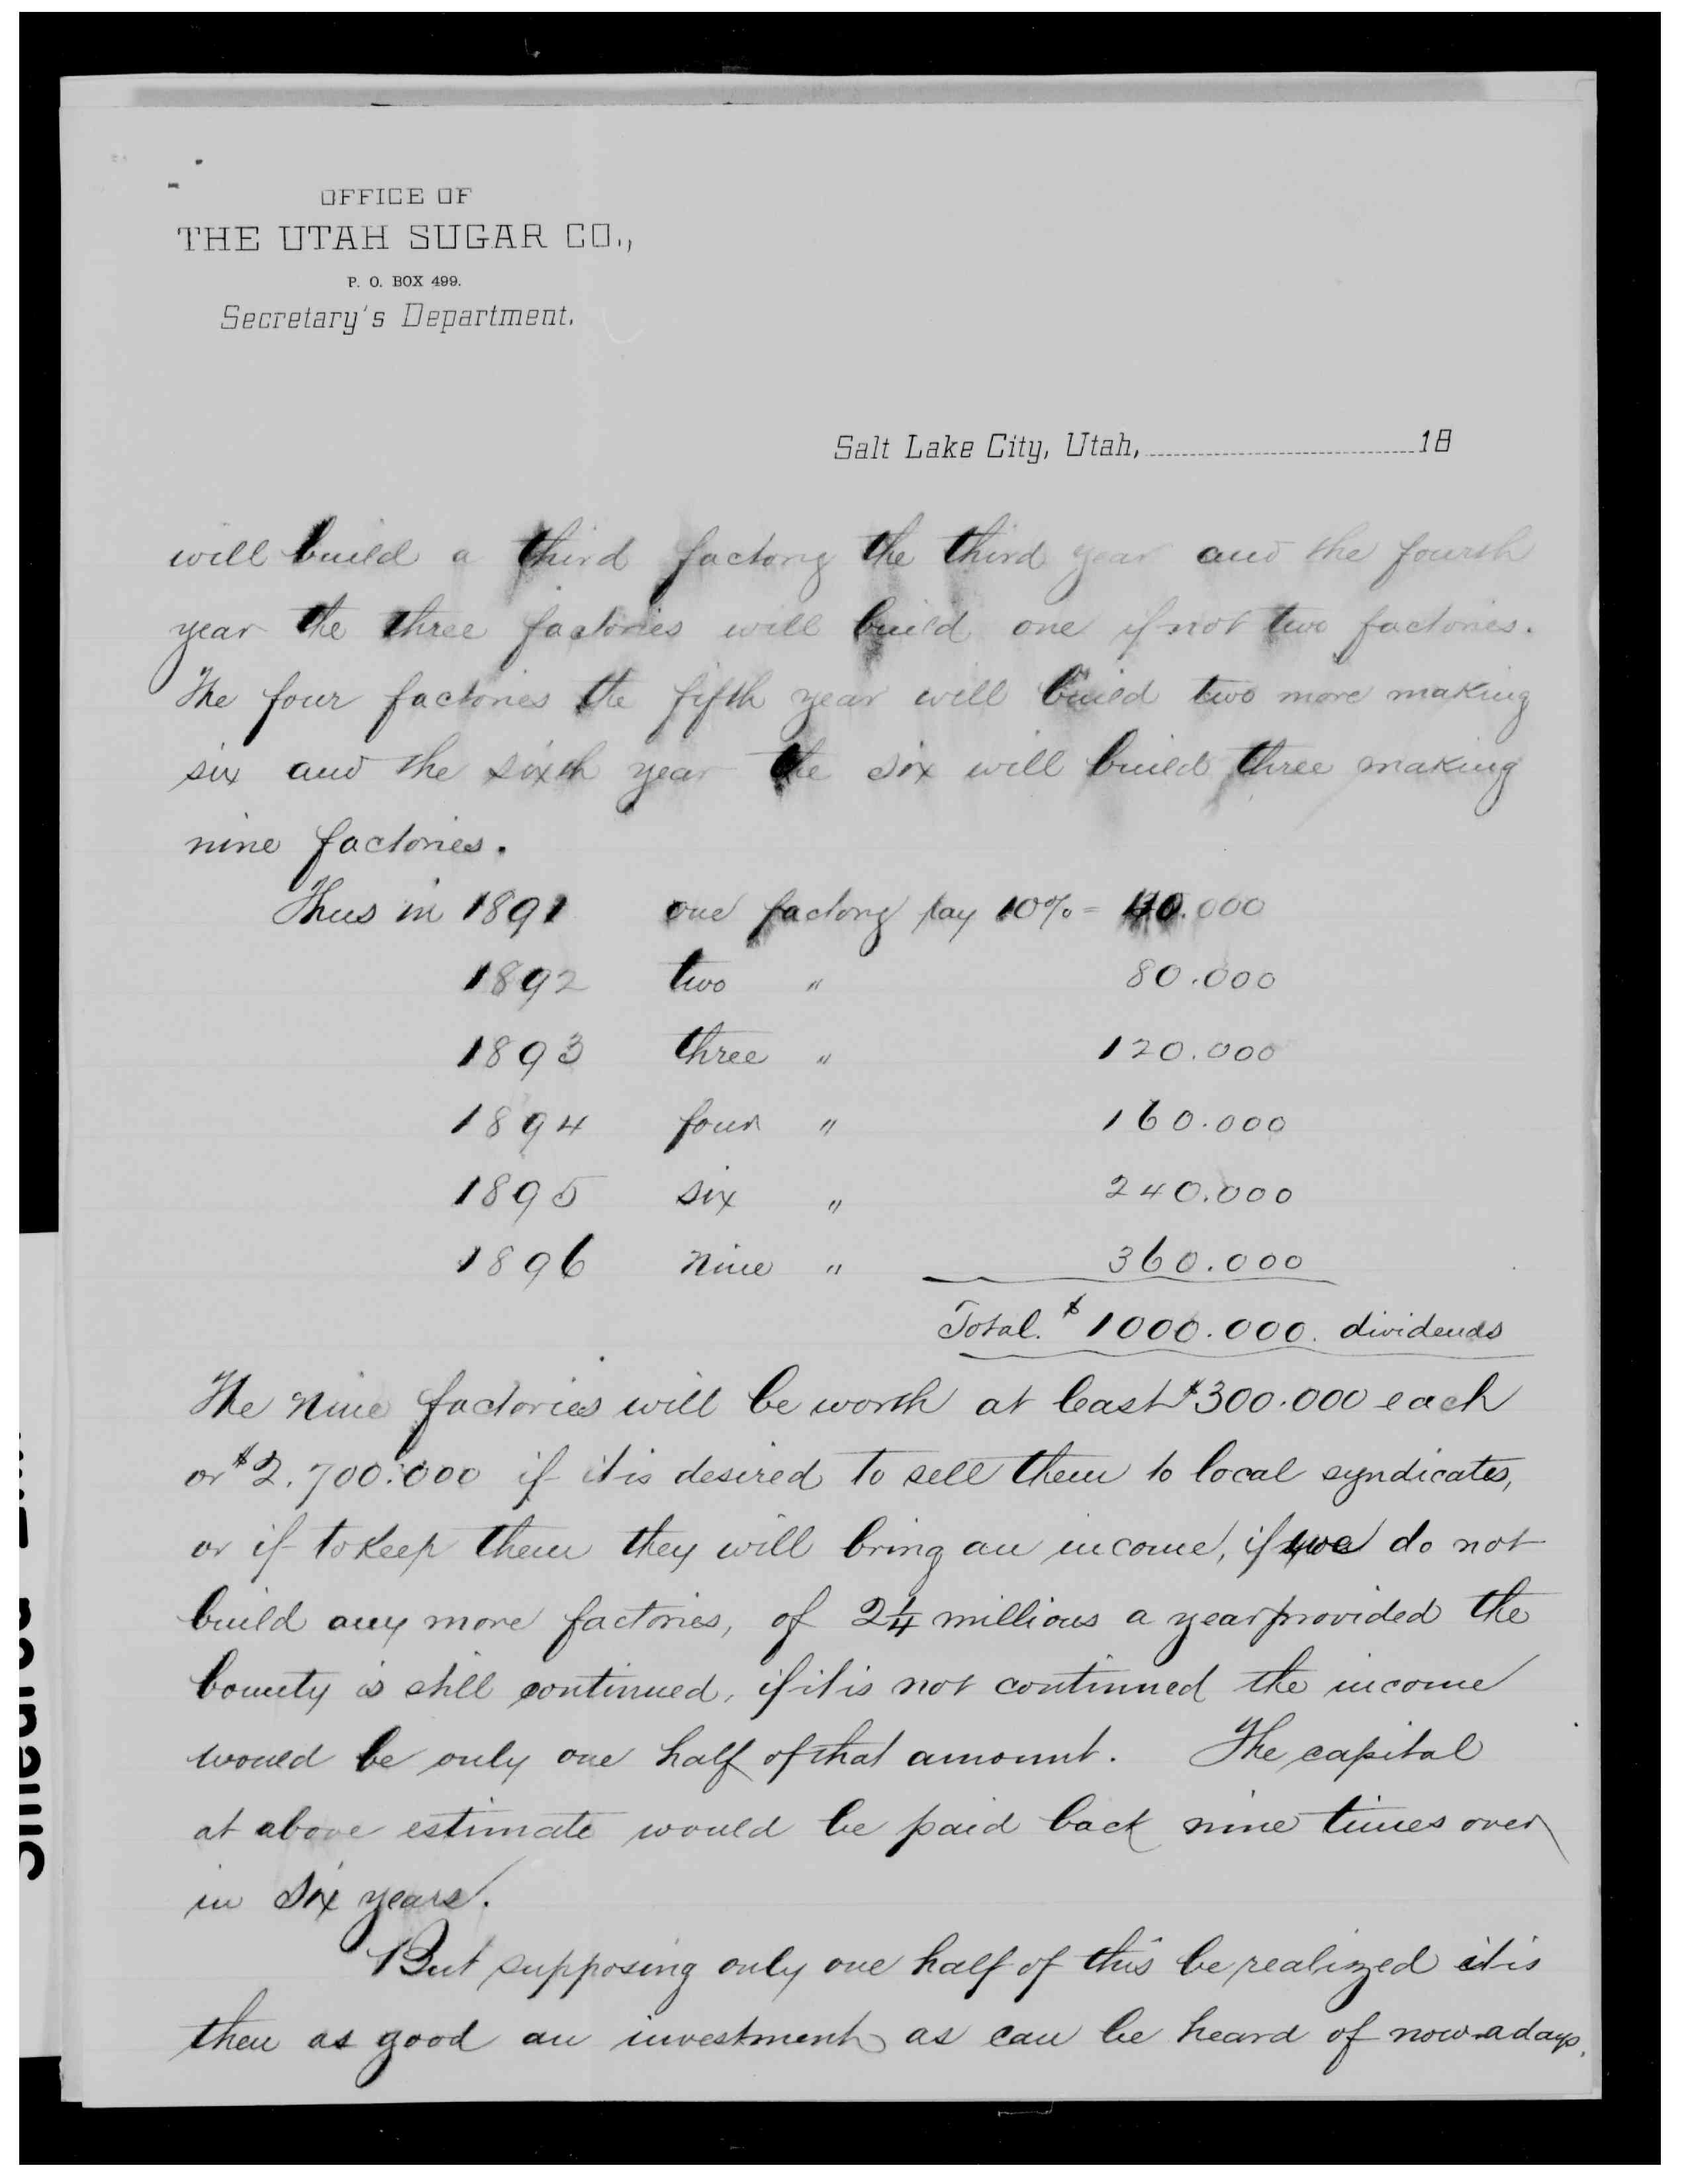 OFFICE OF
THE UTAH SUGAR CO.,
P. O. BOX 499.
Secretary's Department.
Salt Lake City, Utah, 18
will build a third factory the third year and the fourth
year the three factories will build one if not two factories.
The four factories the fifth year will build two more making
six and the sixth year the six will build three making
nine factories.
Thus in 1891 one factory pay 10% = 40.000
1892 two " 80.000
1893 three " 120.000
1894 four " 160.000
1895 six " 240.000
1896 nine " 360.000
Total. $1000.000. dividends
The nine factories will be worth at least $300.000 each
or $2.700.000 if it is desired to sell them to local syndicates,
or if to keep them they will bring an income, if we do not
build any more factories, of 2 1/4 millions a year provided the
bounty is still continued, if it is not continued the income
would be only one half of that amount. The capital
at above estimate would be paid back nine times over
in six years.
But supposing only one half of this be realized it is
then as good an investment as can be heard of now-a days.